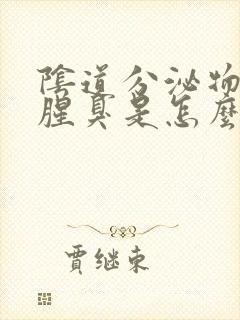 陰道分泌物
腥臭是怎麼
賈继東